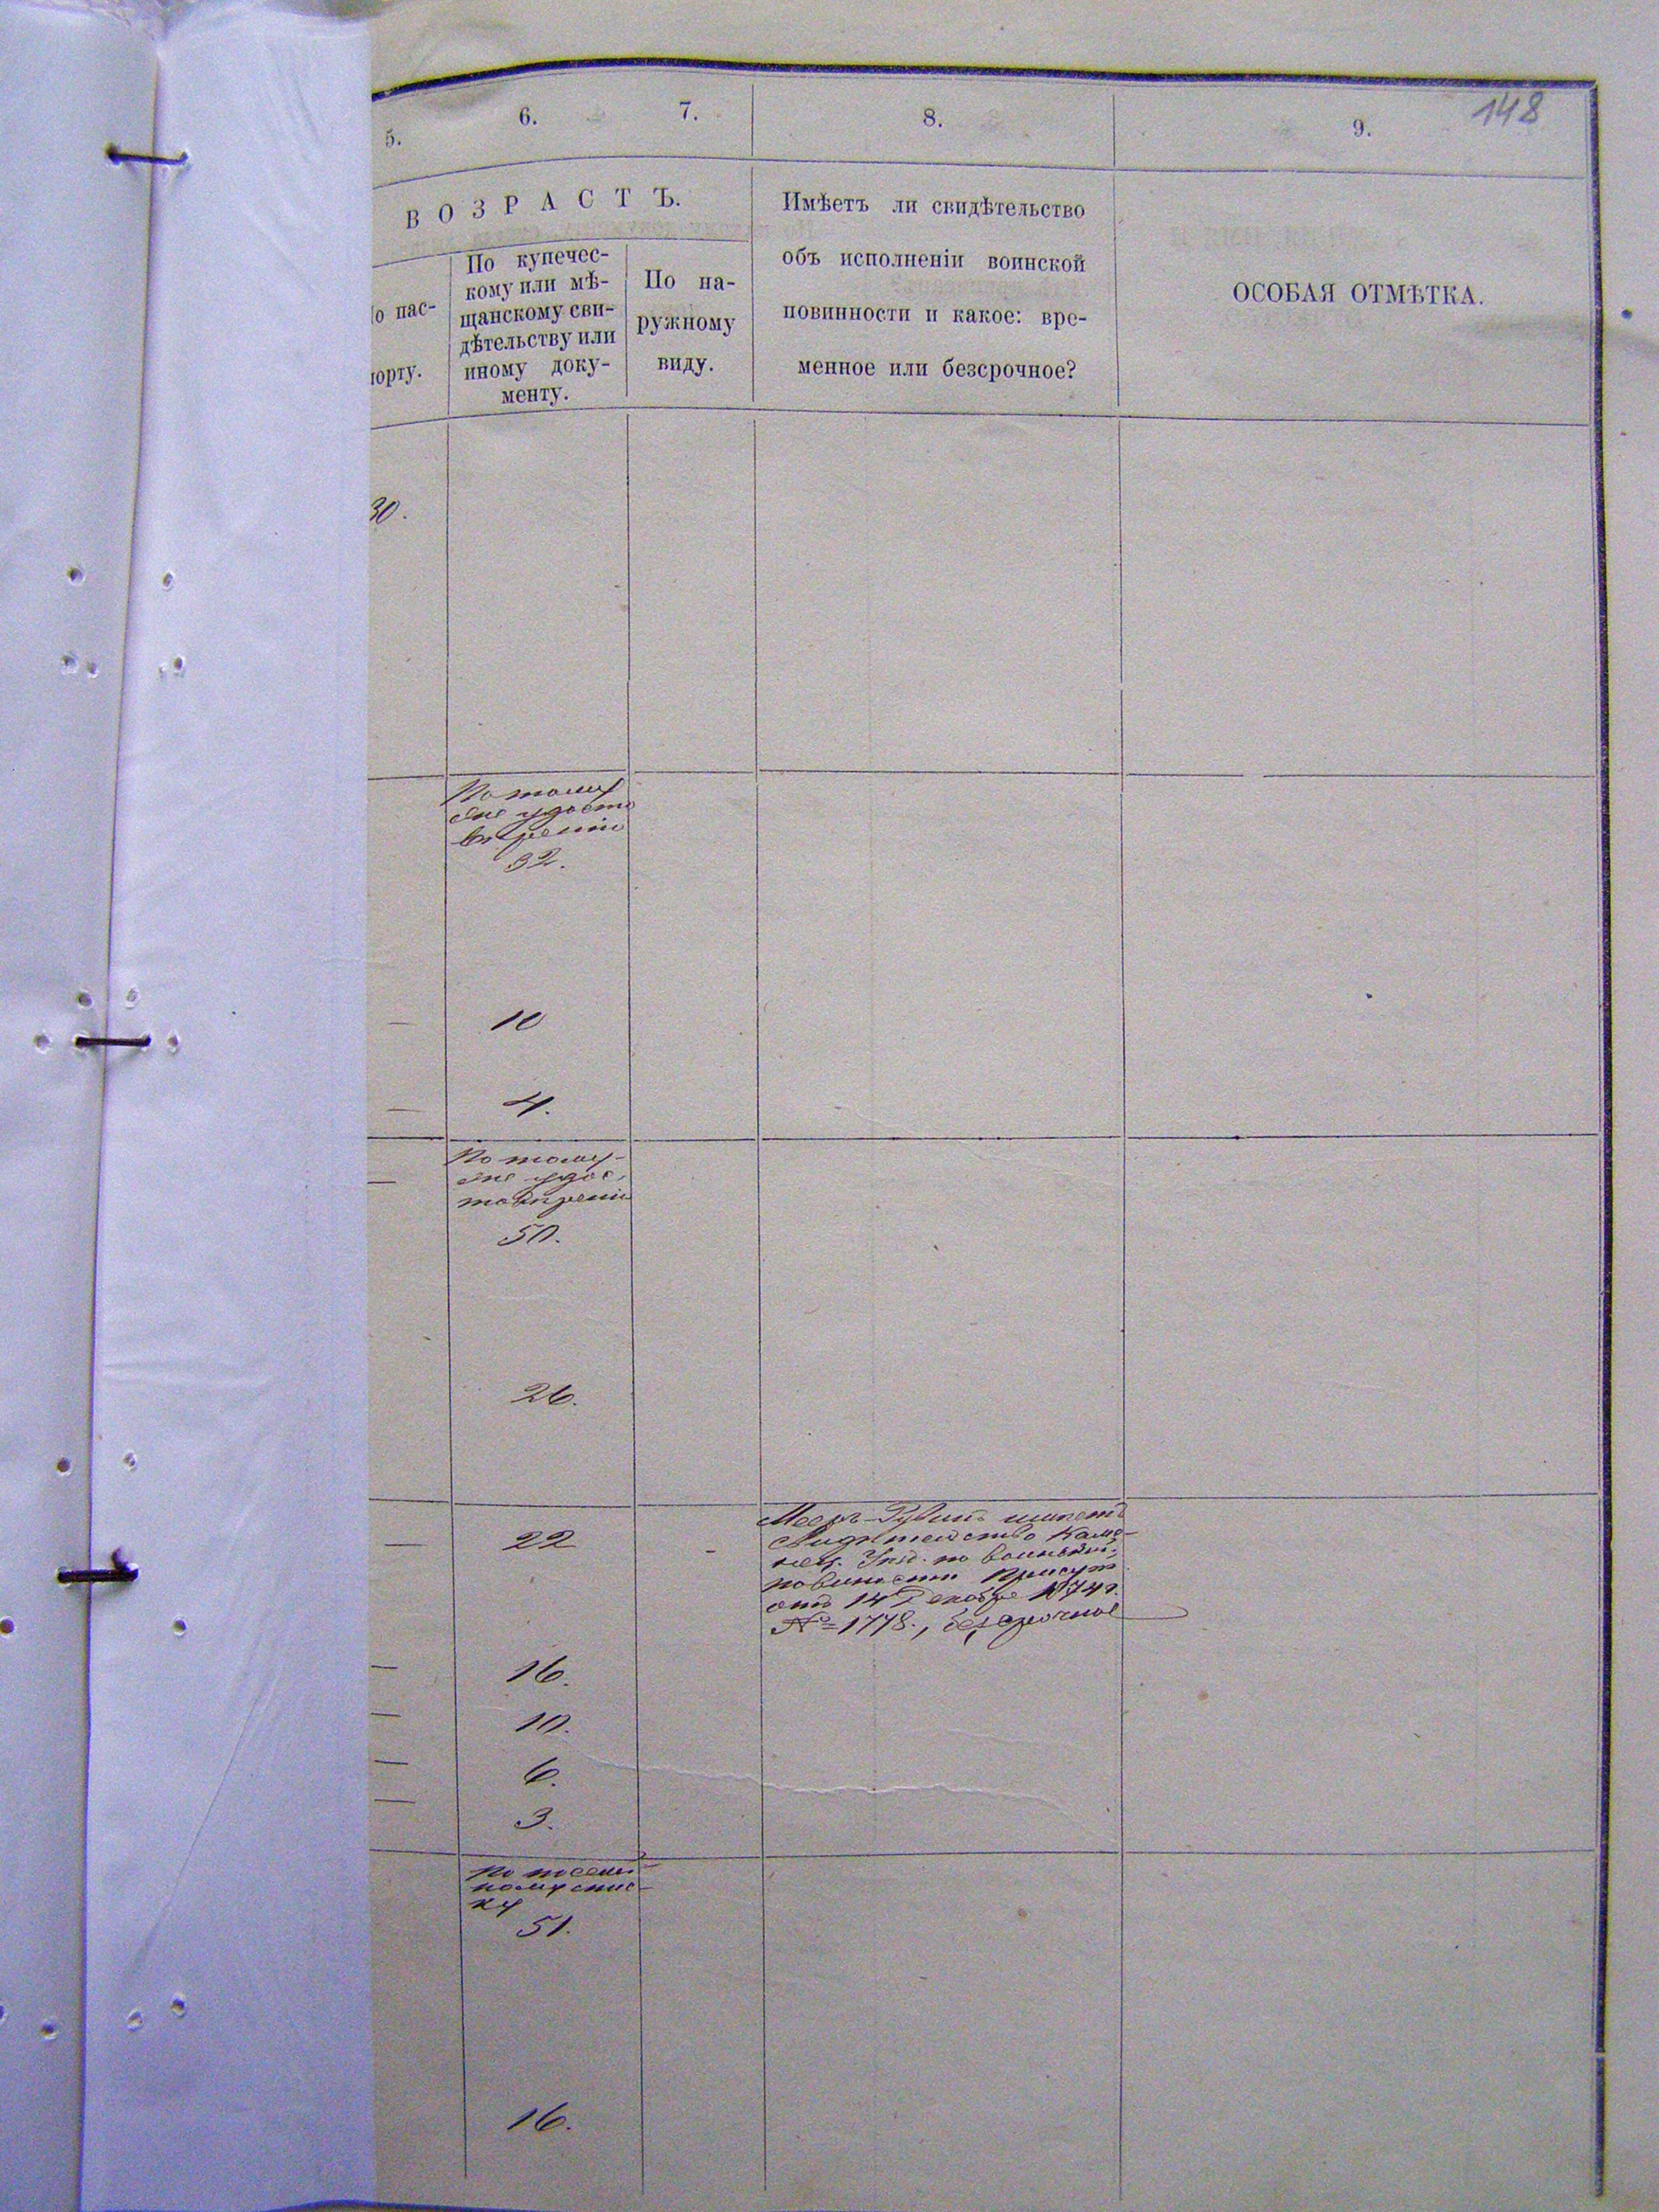 148
5. 6. 7. 8. 9.
ВОЗРАСТЪ.
о пас-
порту.
По купечес-
кому или мѣ-
щанскому сви-
дѣтельству или
иному доку-
менту.
По на-
ружному
виду.
Имѣетъ ли свидѣтельство
объ исполненіи воинской
повинности и какое: вре-
менное или безсрочное?
ОСОБАЯ ОТМѢТКА.
30.
По тому
же удосто
вѣренію
32.
— 10
— 4.
По тому-
— же удос,
товѣренію
50.
26.
— 22 -
Мееръ-Рувинъ имѣетъ
Свидѣтельство Каме-
нец. Уѣзд. по воинской
повинности Присут
отъ 14 Декабря 1874 г.
№ 1778., безсрочное
— 16.
— 10.
— 6.
— 3.
По посемей
ному спис-
ку
51.
16.